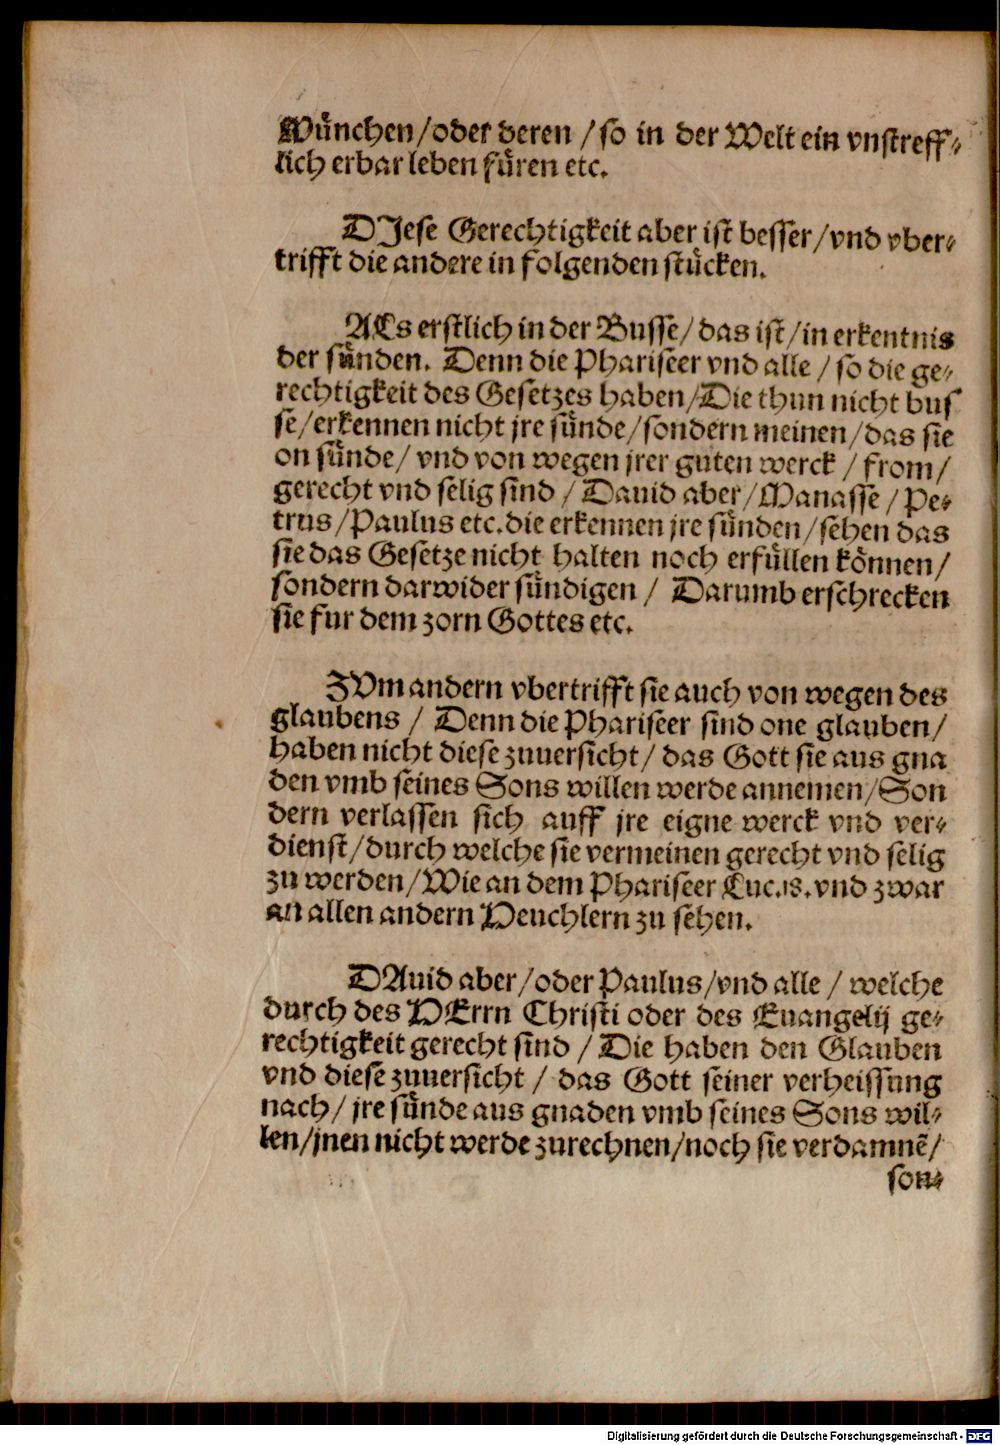 München/oder deren /so in der Welt ein vnstreff⸗
lich erbar leben füren etc.
DJese Gerechtigkeit aber ist besser/vnd vber⸗
trifft die andere in folgenden stücken.
ALs erstlich in der Busse/ das ist/in erkentnis
der sünden. Denn die Phariseer vnd alle / so die ge⸗
rechtigkeit des Gesetzes haben/Die thun nicht bus
se/erkennen nicht jre sünde/sondern meinen/das sie
on sünde/ vnd von wegen jrer guten werck / from/
gerecht vnd selig sind / Dauid aber/Manasse / Pe⸗
trus/Paulus etc.die erkennen jre sünden/sehen das
sie das Gesetze nicht halten noch erfüllen können/
sondern darwider sündigen / Darumb erschrecken
sie fur dem zorn Gottes etc.
ZVm andern vbertrifft sie auch von wegen des
glaubens / Denn die Phariseer sind one glauben/
haben nicht diese zuuersicht/ das Gott sie aus gna
den vmb seines Sons willen werde annemen/Son
dern verlassen sich auff jre eigne werck vnd ver⸗
dienst/durch welche sie vermeinen gerecht vnd selig
zu werden/Wie an dem Phariseer Luc.18.vnd zwar
an allen andern Heuchlern zu sehen.
DAuid aber/oder Paulus/vnd alle / welche
durch des HErrn Christi oder des Euangelij ge⸗
rechtigkeit gerecht sind / Die haben den Glauben
vnd diese zuuersicht / das Gott seiner verheissung
nach/ jre sünde aus gnaden vmb seines Sons wil⸗
len/jnen nicht werde zurechnen/noch sie verdamnē/
son⸗
Digitalisierung gefördert durch die Deutsche Forschungsgemeinschaft - DFG